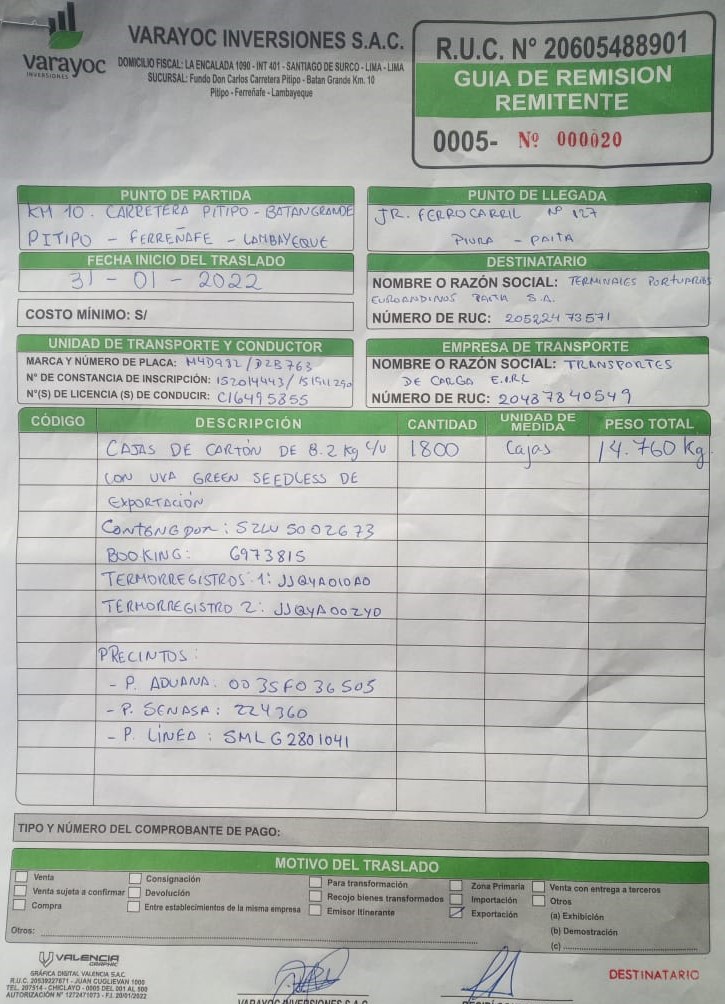 varayoc
INVERSIONES
VARAYOC INVERSIONES S.A.C.
DOMICILIO FISCAL: LA ENCALADA 1090 - INT 401 - SANTIAGO DE SURCO - LIMA - LIMA
SUCURSAL: Fundo Don Carlos Carretera Pitipo - Batan Grande Km. 10
Pitipo - Ferreñafe - Lambayeque
R.U.C. Nº 20605488901
GUIA DE REMISION
REMITENTE
0005- Nº 000020
PUNTO DE PARTIDA
KM 10. CARRETERA PITIPO - BATANGRANDE
PITIPO - FERREÑAFE - LAMBAYEQUE
PUNTO DE LLEGADA
JR. FERROCARRIL Nº 127
PIURA - PAITA
FECHA INICIO DEL TRASLADO
31 - 01 - 2022
COSTO MÍNIMO: S/
DESTINATARIO
NOMBRE O RAZÓN SOCIAL: TERMINALES PORTUARIOS
EUROANDINOS PAITA S.A.
NÚMERO DE RUC: 20522473571
UNIDAD DE TRANSPORTE Y CONDUCTOR
MARCA Y NÚMERO DE PLACA: M4D932 / D2B763
Nº DE CONSTANCIA DE INSCRIPCIÓN: 152014443 / 151911290
Nº(S) DE LICENCIA (S) DE CONDUCIR: C16495355
EMPRESA DE TRANSPORTE
NOMBRE O RAZÓN SOCIAL: TRANSPORTES
DE CARGA E.I.R.L
NÚMERO DE RUC: 20487840549
CÓDIGO DESCRIPCIÓN CANTIDAD UNIDAD DE MEDIDA PESO TOTAL
CAJAS DE CARTÓN DE 8.2 kg c/u 1800 Cajas 14.760 Kg
CON UVA GREEN SEEDLESS DE
EXPORTACIÓN
CONTENEDOR: SZLU 5002673
BOOKING: 6973815
TERMORREGISTROS 1: JJQYA010A0
TERMORREGISTRO 2: JJQYA002Y0
PRECINTOS:
- P. ADUANA: 0035F036505
- P. SENASA: 224360
- P. LÍNEA: SMLG2801041
TIPO Y NÚMERO DEL COMPROBANTE DE PAGO:
MOTIVO DEL TRASLADO
Venta Consignación Para transformación Zona Primaria Venta con entrega a terceros
Venta sujeta a confirmar Devolución Recojo bienes transformados Importación Otros
Compra Entre establecimientos de la misma empresa Emisor Itinerante Exportación (a) Exhibición
(b) Demostración
Otros: (c)
VALENCIA
GRAPHIC
GRÁFICA DIGITAL VALENCIA S.A.C.
R.U.C. 20539227871 - JUAN CUGLIEVAN 1000
TEL. 207514 - CHICLAYO - 0005 DEL 001 AL 500
AUTORIZACIÓN Nº 1272471073 - F.I. 20/01/2022
VARAYOC INVERSIONES S.A.C.
DESTINATARIO